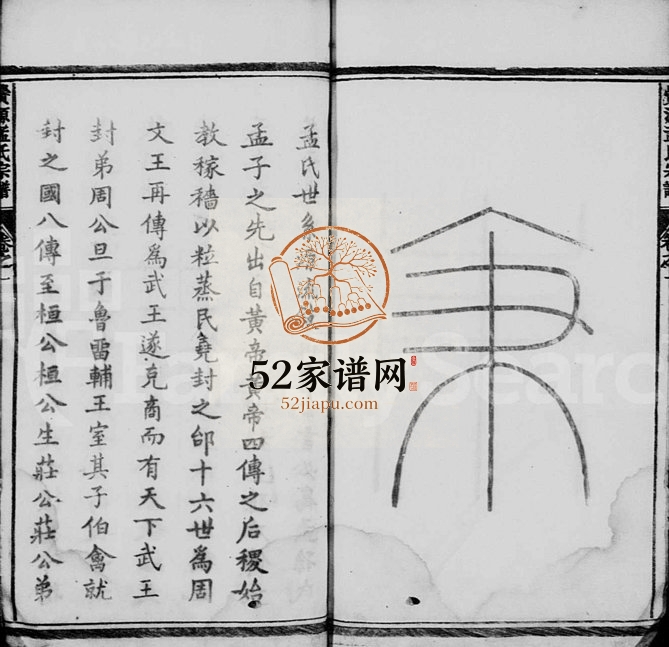 孟氏世系源流
孟子之先出自黃帝黃帝四傳之后稷始
教稼穡以粒蒸民堯封之邰十六世為周
文王再傳為武王遂克商而有天下武王
封弟周公旦于魯雷輔王室其子伯禽就
封之國八傳至桓公桓公生莊公莊公弟
源孟氏宗譜
卷之一
52家谱网
52jiapu.com